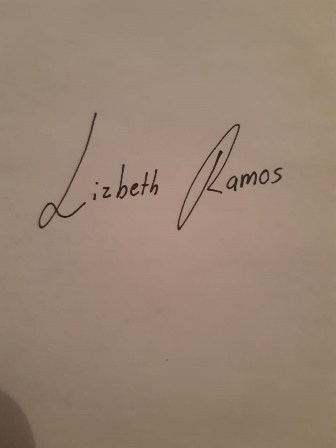 Lizbeth Ramos